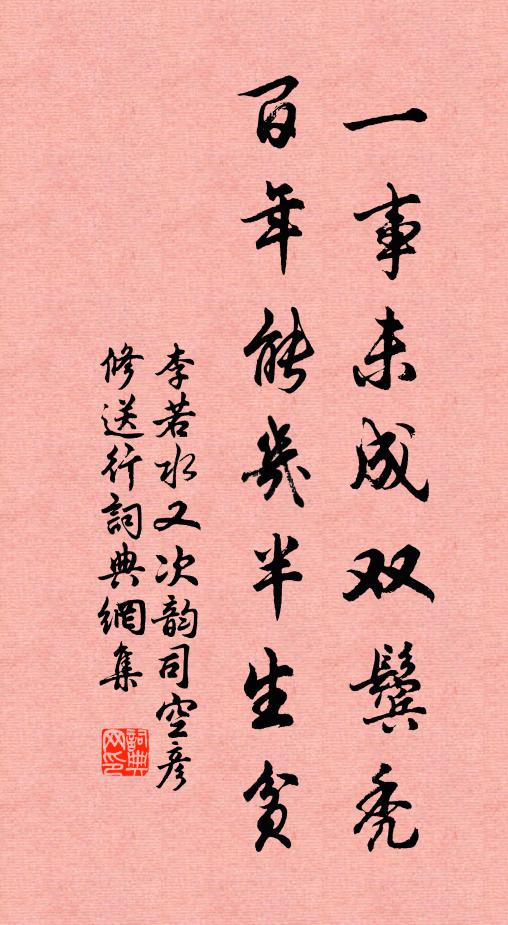 一事未成双鬓秃
百年能几半生贫
李若水又次韵司空彦
修送行詞典網集
詞典網印